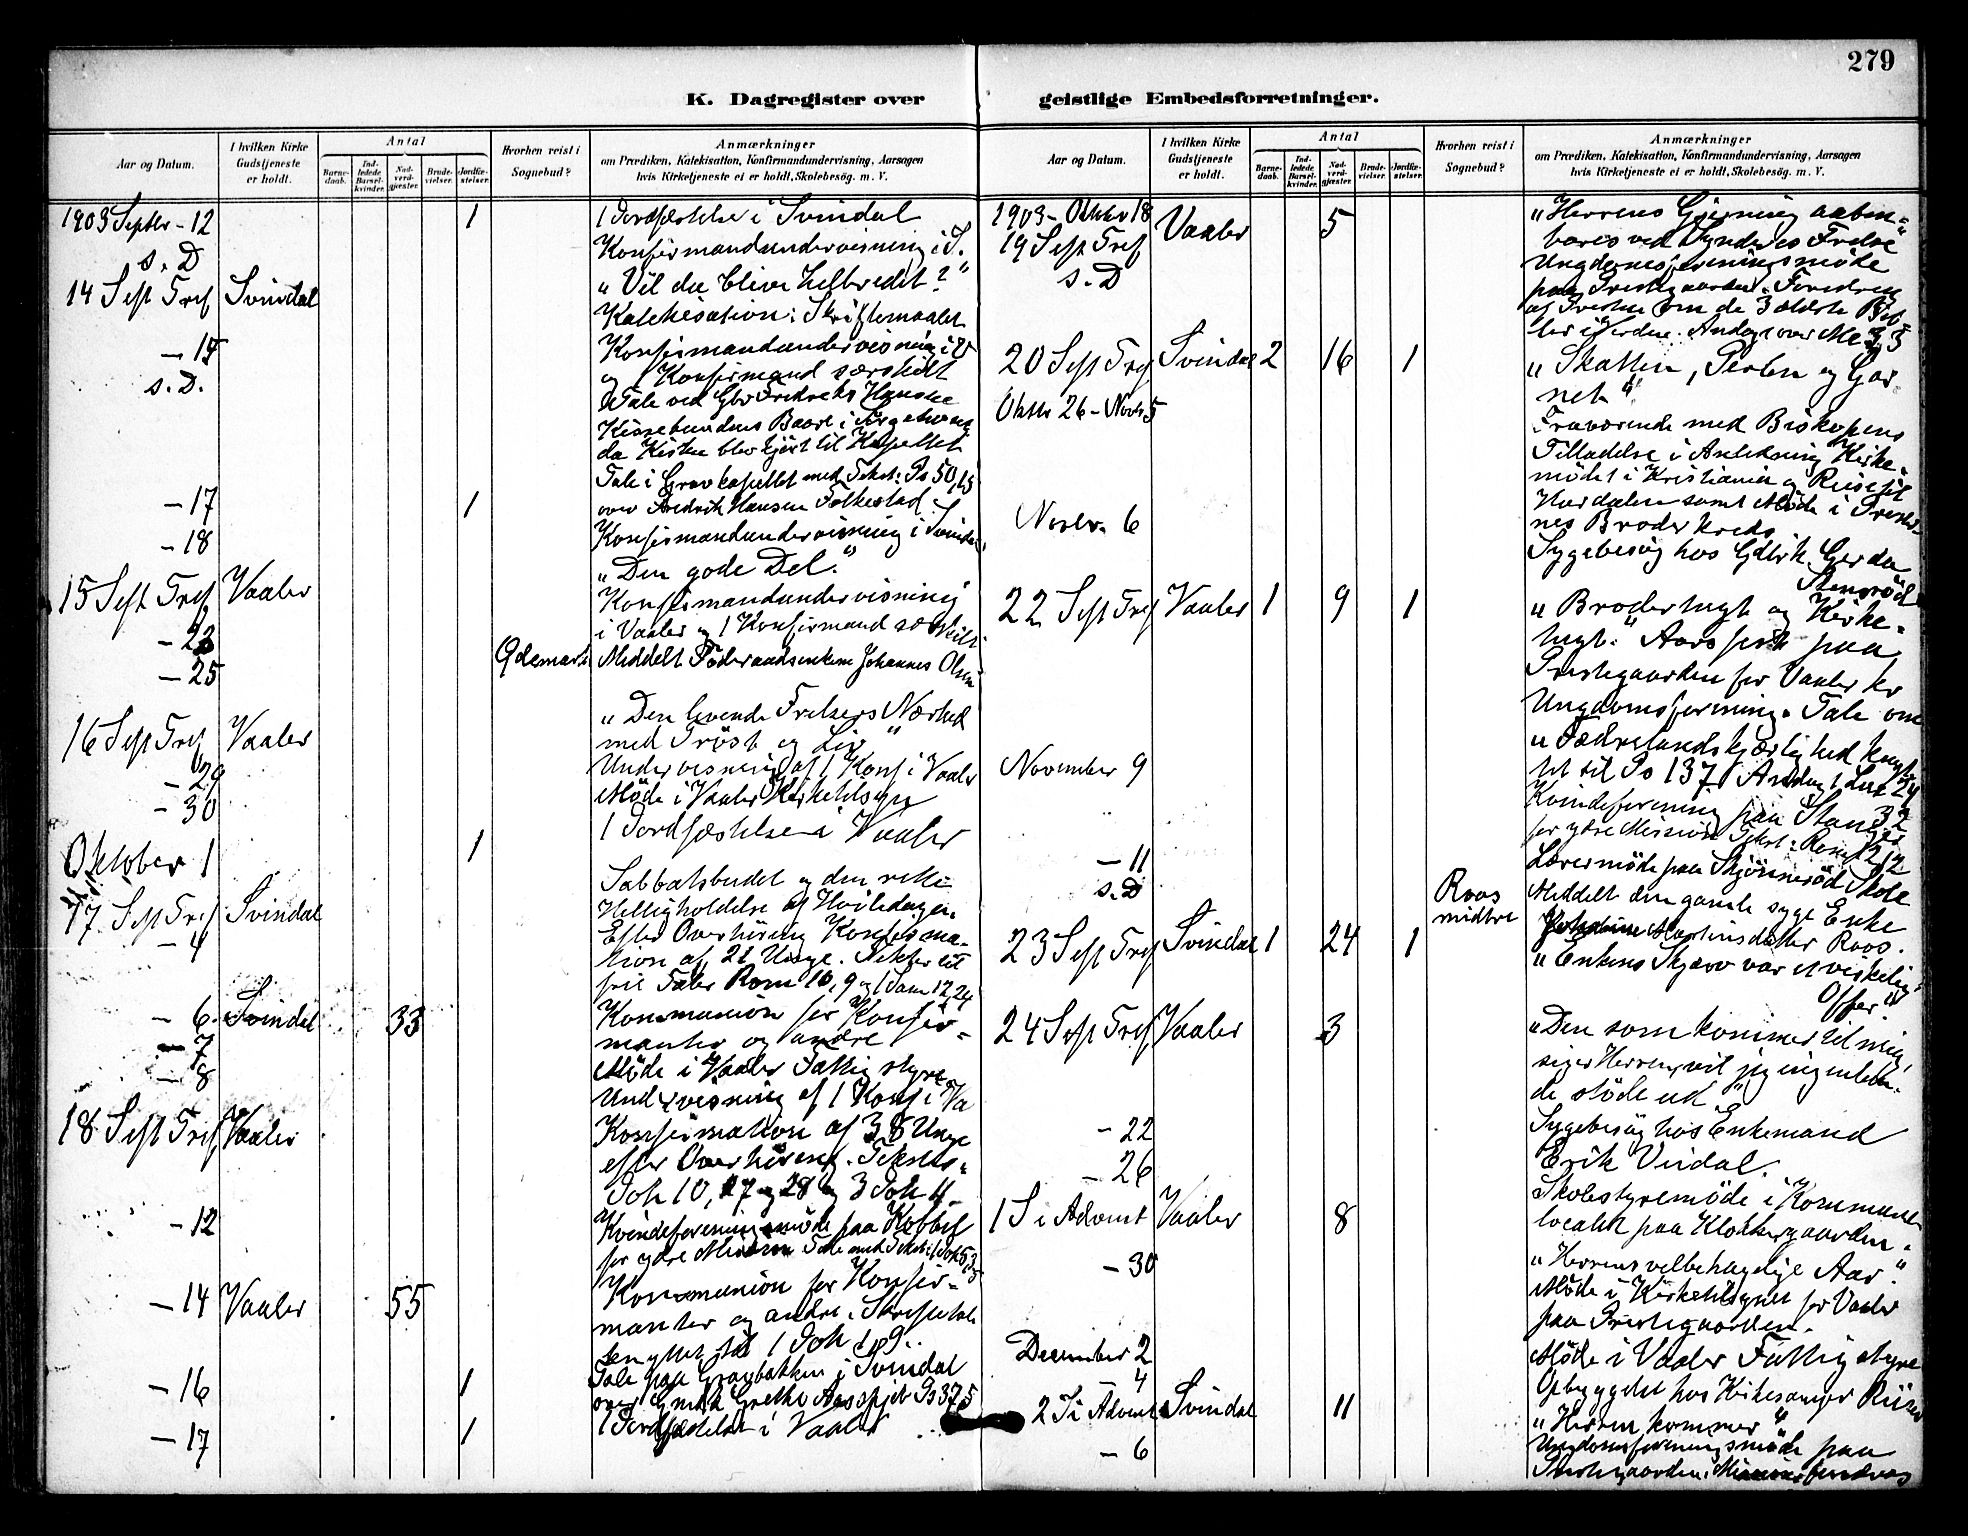 279
K. Dagregister over geistlige Embedsforretninger.
Aar og Datum.
I hvilken Kirke Gudstjeneste er holdt.
Antal
Barnedaab.
Indledede Barselkvinder.
Nadverdgjæster.
Brudevielser.
Jordfæstelser.
Hvorhen reist i Sognebud?
Anmærkninger
om Prædiken, Katekisation, Konfirmandundervisning, Aarsagen
hvis Kirketjeneste ei er holdt, Skolebesøg. m. V.
1903 Septbr - 12 1 1 Jordfæstelse i Svindal
s. D Konfirmandundervisning i S.
14 S eft Tref Svindal „Vil du blive helbredet?"
Katekisation: Skriftemaalet
- 15 Konfirmandundervisning i V
s. D. og 1 Konfirmand særskilt
Tale ved Gbr Fredrek Hanske
Kissebundens Baare i
da Kisten blev kjørt til Kapellet
- 17 1 Tale i Gravkapellet med Tekst: Ps 50,15
over Fredrik Hansen Folkestad.
- 18 Konfirmandundervisning i Svindal
15 S eft Tref Vaaler „Den gode Del."
- 23 Konfirmandundervisning
i Vaaler og 1 Konfirmand særskilt
- 25 Meddelt Føderaadsenkem Johannes Olsen
16 S eft Tref Vaaler „Den levende Frelsers Nærhed
med Trøst og Liv"
- 29 Undervisning af 1 Konf i Vaaler
- 30 Møde i Vaaler Kirketilsyn
Oktober 1 1 1 Jordfæstelse i Vaaler
17 S eft Tref Svindal Sabbatsbudet og den rette
Helligholdelse af Hviledagen.
- 4 Efter Overhøring Konfirma-
tion af 21 Unge. Tekster til
frie Taler Rom 10, 9 og 1 Sam 12,24
- 6 Svindal 33 Kommunion for Konfir-
manter og andre
- 7 Møde i Vaaler Fattigstyre
- 8 Undervisning af 1 Konf i Va
18 S eft Tref Vaaler Konfirmation af 38 Unge
efter Overhøring. Tekster
Joh 10, 27 og 28 og 3 Joh 4.
- 12 Kvindeforeningsmøde paa Kobbel
for ydre Mission Tale med Tekst: 1 Joh 5
- 14 Vaaler 55 Kommunion for Konfir-
manter og andre. Skriftetale
knyttet til 1 Joh 1, 9.
- 16 1 Tale paa Gravbakken i Svindal
over Grethe Ps 37,5
- 17 1 1 Jordfæstelse i Vaaler
Aar og Datum.
I hvilken Kirke Gudstjeneste er holdt.
Antal
Barnedaab.
Indledede Barselkvinder.
Nadverdgjæster.
Brudevielser.
Jordfæstelser.
Hvorhen reist i Sognebud?
Anmærkninger
om Prædiken, Katekisation, Konfirmandundervisning, Aarsagen
hvis Kirketjeneste ei er holdt, Skolebesøg. m. V.
1903 - Oktbr 18
19 S eft Tref Vaaler 5 „Herrens Gjerning aaben-
bares ved Synderes Frelse"
s. D Ungdomsforeningsmøde
paa Prestegaarden. Foredrag
af Presten om de 3 ældste Bib-
ler i Verden. Andagt over
20 S eft Tref Svindal 2 16 1 „Skatten, Perlen og Gar-
net"
Oktbr 26 - Novbr 5 Fraværende med Biskopens
Tilladelse i Anledning Kirke-
mødet i Kristiania og Reise til
Hurdalen samt Møde i Prester-
nes Broderkreds
Novbr. 6 Sygebesøg hos Gerda
Stensrød
22 S eft Tref Vaaler 1 9 1 „Brodertugt og Kirke-
tugt." Aarsfest paa
Prestegaarden for Vaaler kr
Ungdomsforening. Tale om
„Fædrelandskjærlighed knyt-
tet til Ps 137. Andag Luc 24
November 9 Kvindeforening paa Stanger 32
for ydre Mission Tekst: Rom 12,12
- 11 Lærermøde paa Skjønnerød Skole
s. D Roos midtre Meddelt den gamle syge Enke
Martinsdatter Roos.
23 S eft Tref Svindal 1 24 1 „Enkens Skjærv var et virkelig
Offer"
24 S eft Tref Vaaler 3 „Den som kommer til mig,
siger Herren, vil jeg ingenlun-
de støde ud"
- 22 Sygebesøg hos Enkemand
Erik Vindal.
- 26 Skolestyremøde i Kommune-
localet paa Klokkergaarden.
1 S i Advent Vaaler 8 „Herrens velbehagelige Aar."
- 30 Møde i Kirketilsynet for Vaaler
paa Prestegaarden.
December 2 Møde i Vaaler Fattigstyre
4 Opbyggelse hos Kirkesanger Riiser
2 S i Advent Svindal 11 „Herren kommer"
- 6 Ungdomsforeningsmøde paa
Prestegaarden.